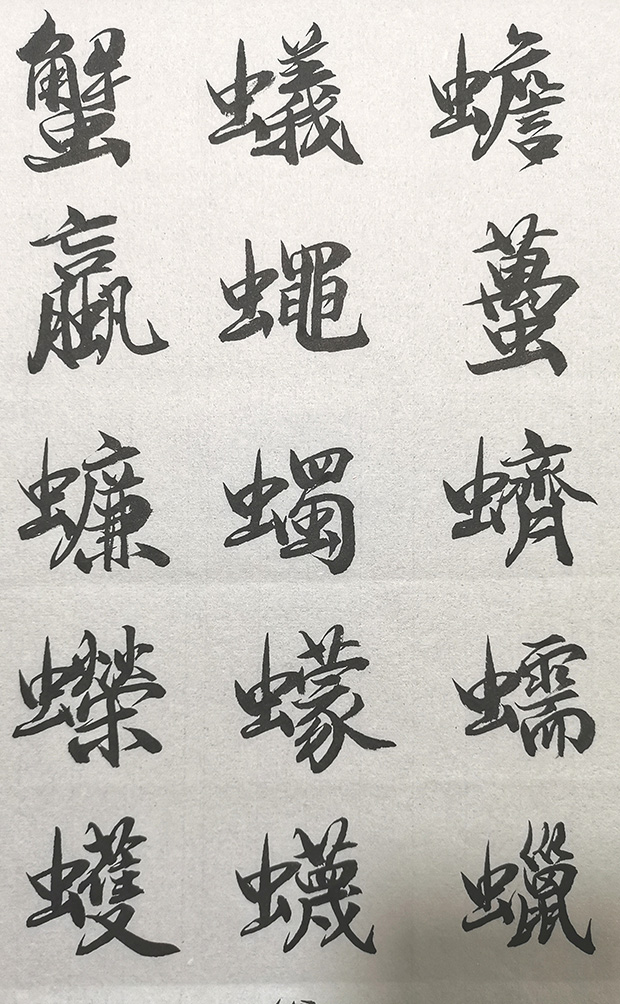 蟹蟻蟾
蠃蠅蠆
蠊蠋蠐
蠑蠓蠕
蠖蠛蠟